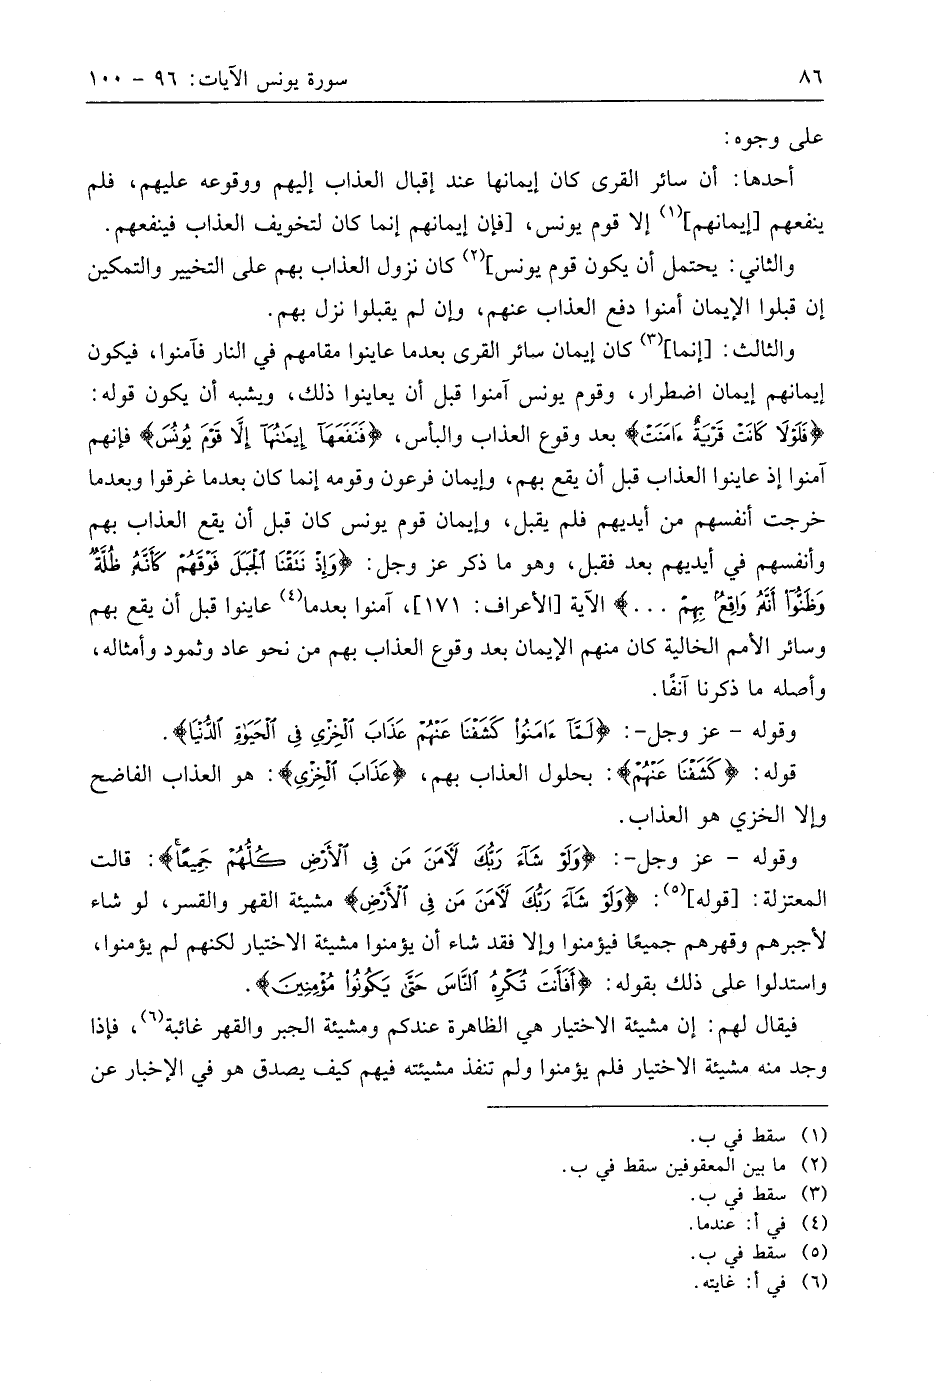 ٨٦ سورة يونس الآيات: ٩٦ - ١٠٠
على وجوه:
أحدها: أن سائر القرى كان إيمانها عند إقبال العذاب إليهم ووقوعه عليهم، فلم
ينفعهم [إيمانهم](١) إلا قوم يونس، [فإن إيمانهم إنما كان لتخويف العذاب فينفعهم.
والثاني: يحتمل أن يكون قوم يونس](٢) كان نزول العذاب بهم على التخيير والتمكين
إن قبلوا الإيمان أمنوا دفع العذاب عنهم، وإن لم يقبلوا نزل بهم.
والثالث: [إنما](٣) كان إيمان سائر القرى بعدما عاينوا مقامهم في النار فآمنوا، فيكون
إيمانهم إيمان اضطرار، وقوم يونس آمنوا قبل أن يعاينوا ذلك، ويشبه أن يكون قوله:
﴿فَلَوْلَا كَانَتْ قَرْيَةٌ ءَامَنَتْ﴾ بعد وقوع العذاب والبأس، ﴿فَنَفَعَهَآ إِيمَٰنُهَآ إِلَّا قَوْمَ يُونُسَ﴾ فإنهم
آمنوا إذ عاينوا العذاب قبل أن يقع بهم، وإيمان فرعون وقومه إنما كان بعدما غرقوا وبعدما
خرجت أنفسهم من أيديهم فلم يقبل، وإيمان قوم يونس كان قبل أن يقع العذاب بهم
وأنفسهم في أيديهم بعد فقبل، وهو ما ذكر عز وجل: ﴿وَإِذْ نَتَقْنَا ٱلْجَبَلَ فَوْقَهُمْ كَأَنَّهُۥ ظُلَّةٌ
وَظَنُّوٓا۟ أَنَّهُۥ وَاقِعٌۢ بِهِمْ ...﴾ الآية [الأعراف: ١٧١]، آمنوا بعدما(٤) عاينوا قبل أن يقع بهم
وسائر الأمم الخالية كان منهم الإيمان بعد وقوع العذاب بهم من نحو عاد وثمود وأمثاله،
وأصله ما ذكرنا آنفًا.
وقوله - عز وجل-: ﴿لَمَّآ ءَامَنُوا۟ كَشَفْنَا عَنْهُمْ عَذَابَ ٱلْخِزْىِ فِى ٱلْحَيَوٰةِ ٱلدُّنْيَا﴾.
قوله: ﴿كَشَفْنَا عَنْهُمْ﴾: بحلول العذاب بهم، ﴿عَذَابَ ٱلْخِزْىِ﴾: هو العذاب الفاضح
وإلا الخزي هو العذاب.
وقوله - عز وجل-: ﴿وَلَوْ شَآءَ رَبُّكَ لَأٓمَنَ مَن فِى ٱلْأَرْضِ كُلُّهُمْ جَمِيعًا﴾: قالت
المعتزلة: [قوله](٥): ﴿وَلَوْ شَآءَ رَبُّكَ لَأٓمَنَ مَن فِى ٱلْأَرْضِ﴾ مشيئة القهر والقسر، لو شاء
لأجبرهم وقهرهم جميعًا فيؤمنوا وإلا فقد شاء أن يؤمنوا مشيئة الاختيار لكنهم لم يؤمنوا،
واستدلوا على ذلك بقوله: ﴿أَفَأَنتَ تُكْرِهُ ٱلنَّاسَ حَتَّىٰ يَكُونُوا۟ مُؤْمِنِينَ﴾.
فيقال لهم: إن مشيئة الاختيار هي الظاهرة عندكم ومشيئة الجبر والقهر غائبة(٦)، فإذا
وجد منه مشيئة الاختيار فلم يؤمنوا ولم تنفذ مشيئته فيهم كيف يصدق هو في الإخبار عن
(١) سقط في ب.
(٢) ما بين المعقوفين سقط في ب.
(٣) سقط في ب.
(٤) في أ: عندما.
(٥) سقط في ب.
(٦) في أ: غايته.